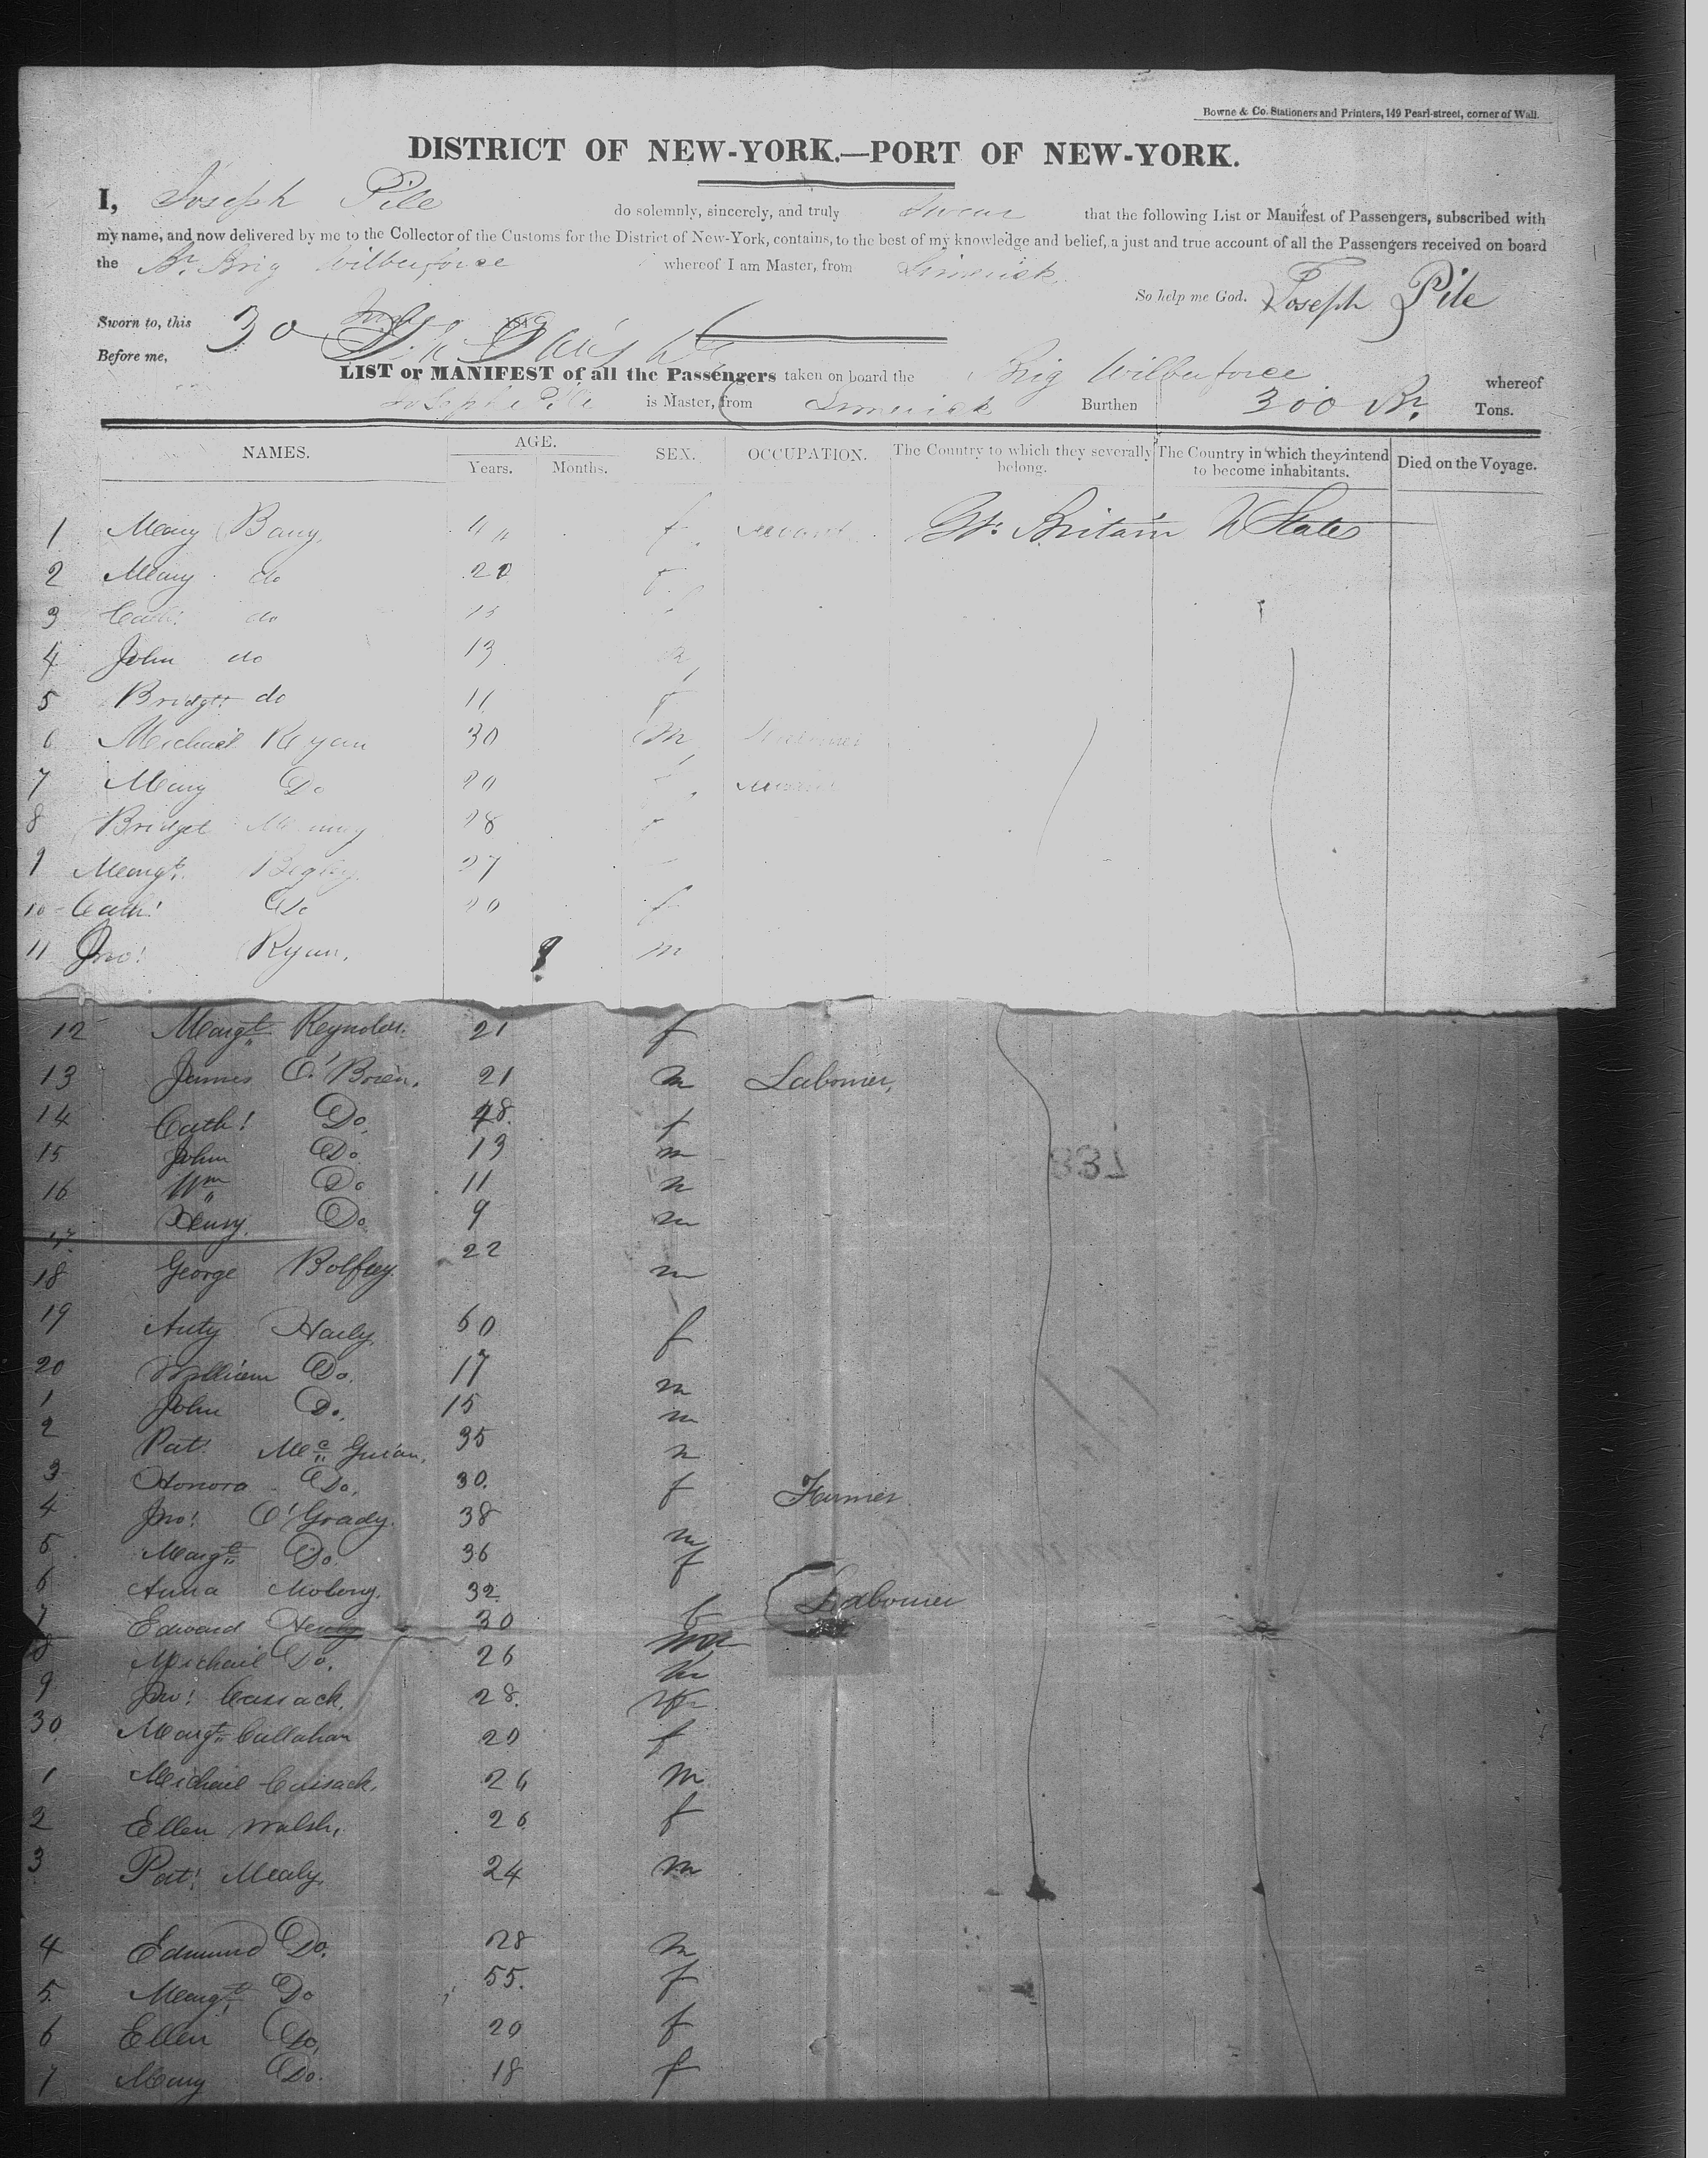 Bowne & Co. Stationers and Printers, 149 Pearl-street, corner of Wall.
DISTRICT OF NEW-YORK.—PORT OF NEW-YORK.
I, Joseph Pile do solemnly, sincerely, and truly Swear that the following List or Manifest of Passengers, subscribed with
my name, and now delivered by me to the Collector of the Customs for the District of New-York, contains, to the best of my knowledge and belief, a just and true account of all the Passengers received on board
the Br. Brig Wilberforce whereof I am Master, from Limerick
So help me God. Joseph Pile
Sworn to, this 30
Before me,
LIST or MANIFEST of all the Passengers taken on board the Brig Wilberforce whereof
Joseph Pile is Master, from Limerick Burthen 300 Br. Tons.
NAMES. AGE. Years. Months. SEX. OCCUPATION. The Country to which they severally belong. The Country in which they intend to become inhabitants. Died on the Voyage.
1 Mary Barry f Gt. Britain U States
2 Mary do f
3 Cath: do
4 John do 13 m
5 Bridgt: do 11 f
6 Michael Ryan 30 m
7 Mary Do 20
8 Bridget 28 f
9 Margt. Begley 27
10 Cath! Do 20 f
11 Jno! Ryan, 9 m
12 Margt. Reynolds. 21 f
13 James O'Brien. 21 m Labourer,
14 Cath! Do. 48. f
15 John Do. 13 m
16 Wm Do 11 m
17 Henry. Do. 9 m
18 George Bolfrey. 22 m
19 Anty Haily, 60 f
20 William Do. 17 m
1 John Do. 15 m
2 Pat! Mc. 35 m
3 Honora Do. 30. f Farmer
4 Jno! O'Grady. 38 m
5 Margt. Do. 36 f
6 Anna Molony. 32 f Labourer
7 Edward 30 m
8 Michael Do. 26 m
9 Jno! Cussack, 28. m
30 Margt. Callahan 20 f
1 Michael Cussack, 26 m
2 Ellen Walsh, 26 f
3 Pat! Mealy, 24 m
4 Edmund Do. 28 m
5 Margt. Do 55. f
6 Ellen Do, 20 f
7 Mary Do. 18 f